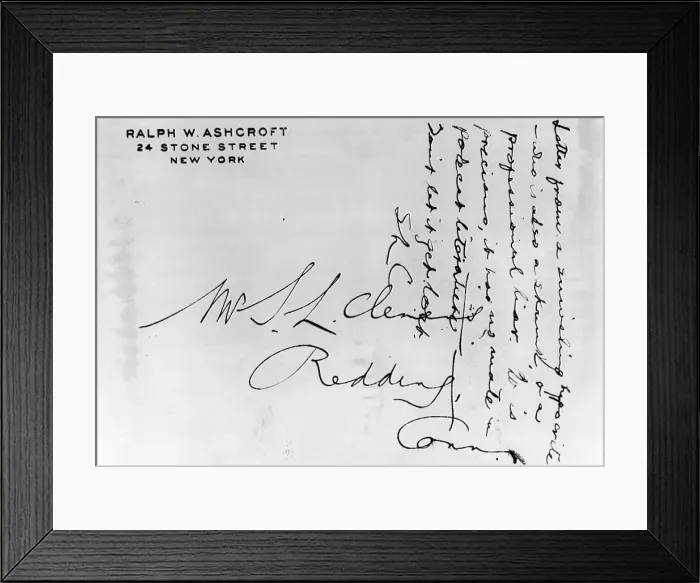 RALPH W. ASHCROFT
24 STONE STREET
NEW YORK
Mr S. L. Clemens.
Redding,
Conn.
Letter from a sniveling hypocrite
- who is also a skunk, & a
professional liar. It is
precious, it has no mate in
Polecat literature
Don't let it get lost.
SLC